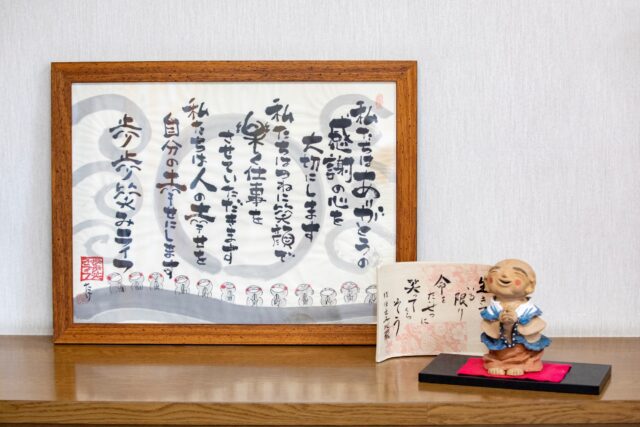 私たちはありがとうの
感謝の心を
大切にします
私たちはつねに笑顔で
楽しく仕事を
させていただきます
私たちは人の幸せを
自分の幸せにします
歩歩笑みライフ
限り
命を